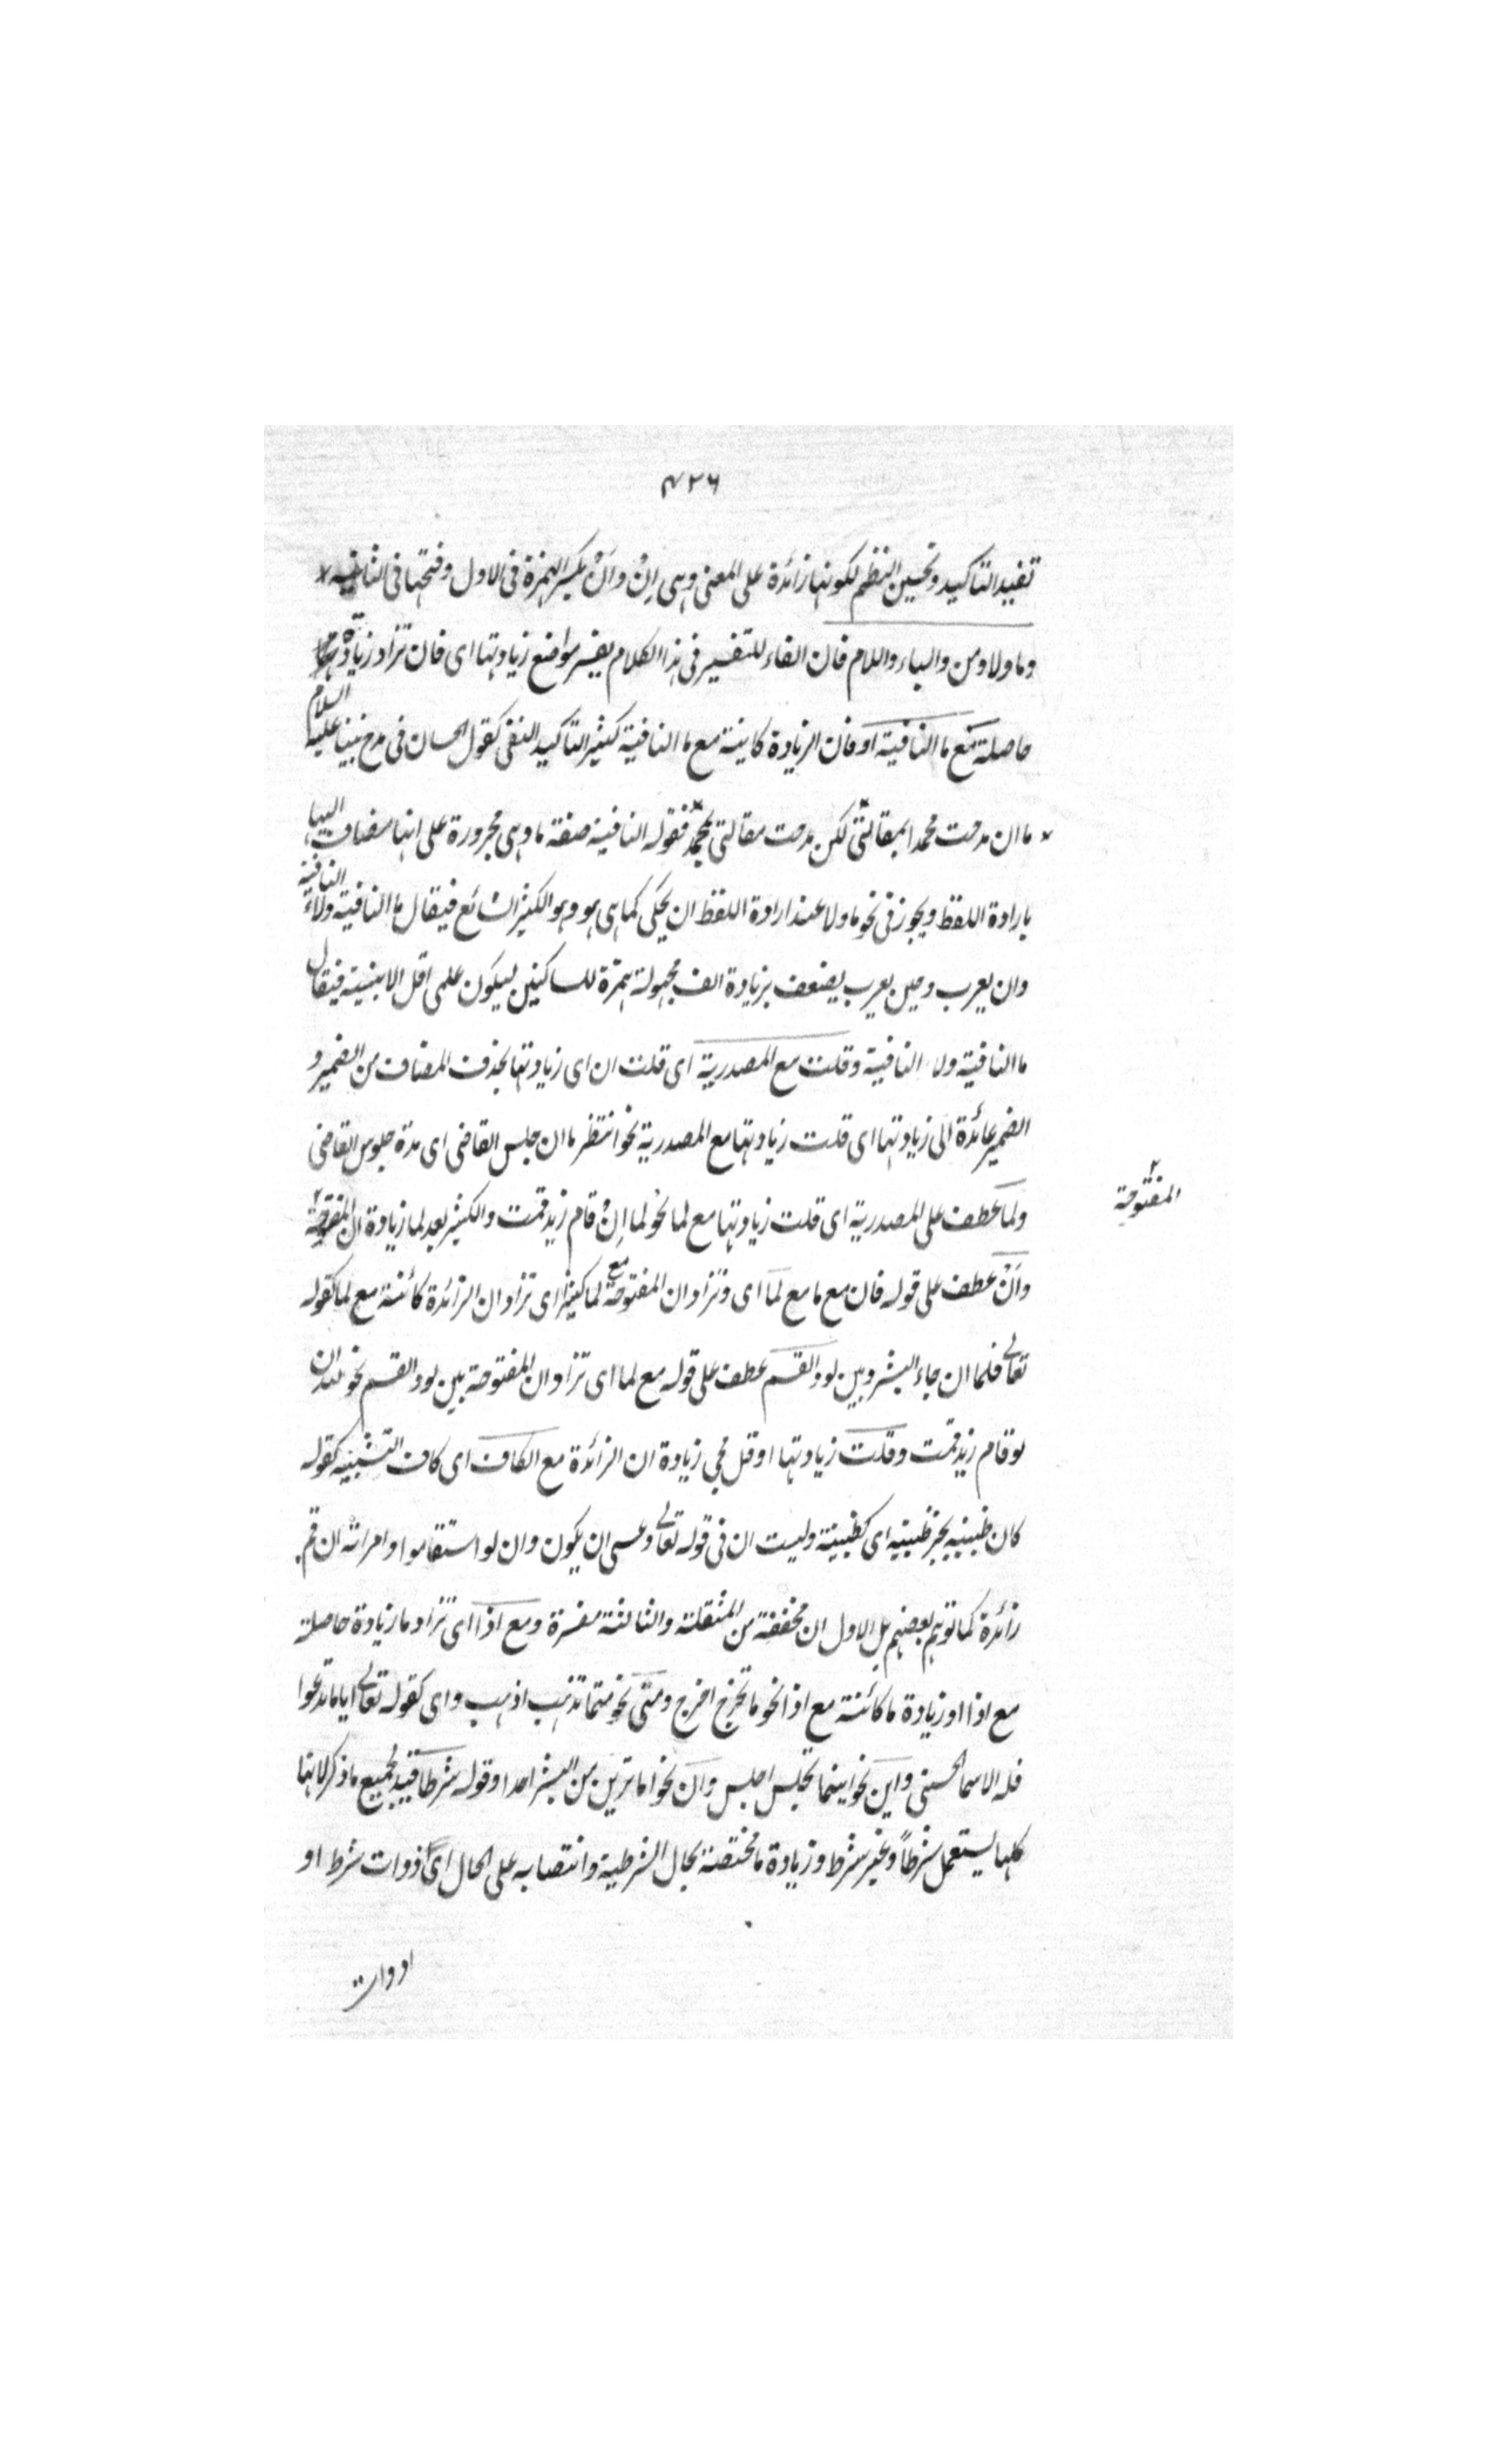 ٤٢٦
تفيد التاكيد وتحسين النظم لكونها زائدة على المعنى وهى اِنْ واَنْ بكسر الهمزة فى الاول وفتحها فى الثانى
وما ولا ومن والباء واللام فان الفاء للتفسير فى هذا الكلام يفسر مواضع زيادتها اى فان تزاد زيادة
حاصلة مع ما النافية او فان الزيادة كاينة مع ما النافية كثير التاكيد النفى كقول الحسان فى مدح نبينا عليه السلام
ما ان مدحت محمدا بمقالتى لكن مدحت مقالتى بمحمد فقوله النافية صفة ما وهى مجرورة على انها مضاف اليها
بارادة اللفظ ويجوز فى نحو ما ولا عند ارادة اللفظ ان يحكى كما هى هو وهو الكثير الشائع فيقال ما النافية ولاء النافية
وان يعرب وحين يعرب يضعف بزيادة الف مجهولة همزة للساكنين ليكون على اقل الابنية فيقال
ما النافية ولا النافية وقلت مع المصدرية اى قلت ان اى زيادتها بحذف المضاف من الضمير و
الضمير عائدة الى زيادتها اى قلت زيادتها مع المصدرية نحو انتظر ما ان جلس القاضى اى مدة جلوس القاضى
ولما عطف على المصدرية اى قلت زيادتها مع لما نحو لما اِنْ قام زيد قمت والكثير بعد لما زيادة ان المفتوحة
المفتوحة
واَنْ عطف على قوله فان مع ما مع لما اى وتزاد ان المفتوحة مع لما كثيرا اى تزاد ان الزائدة كائنة مع لما كقوله
تعالى فلما ان جاء البشير وبين لو والقسم عطف على قوله مع لما اى تزاد ان المفتوحة بين لو والقسم نحو والله ان
لو قام زيد قمت وقلت زيادتها او قل مجى زيادة ان الزائدة مع الكاف اى كاف التشبيه كقوله
كان ظبية بجر ظبية اى كظبية وليست ان فى قوله تعالى وعسى ان يكون وان لو استقاموا وامراته ان قم
زائدة كما توهم بعضهم بل الاول ان مخففة من المثقلة والثالثة مفسرة ومع اذا اى تزاد ما زيادة حاصلة
مع اذا او زيادة ما كائنة مع اذا نحو ما تخرج اخرج ومتى نحو متما تذهب اذهب واى كقوله تعالى اياما تدعوا
فله الاسما الحسنى واين نحو اينما تجلس اجلس وان نحو اما ترين من البشر احدا وقوله شرطا قيد لجميع ما ذكر لانها
كلها يستعمل شرطاً وغير شرط وزيادة ما مختصة بحال الشرطية وانتصابه على الحال اى ذوات شرط او
ادوات